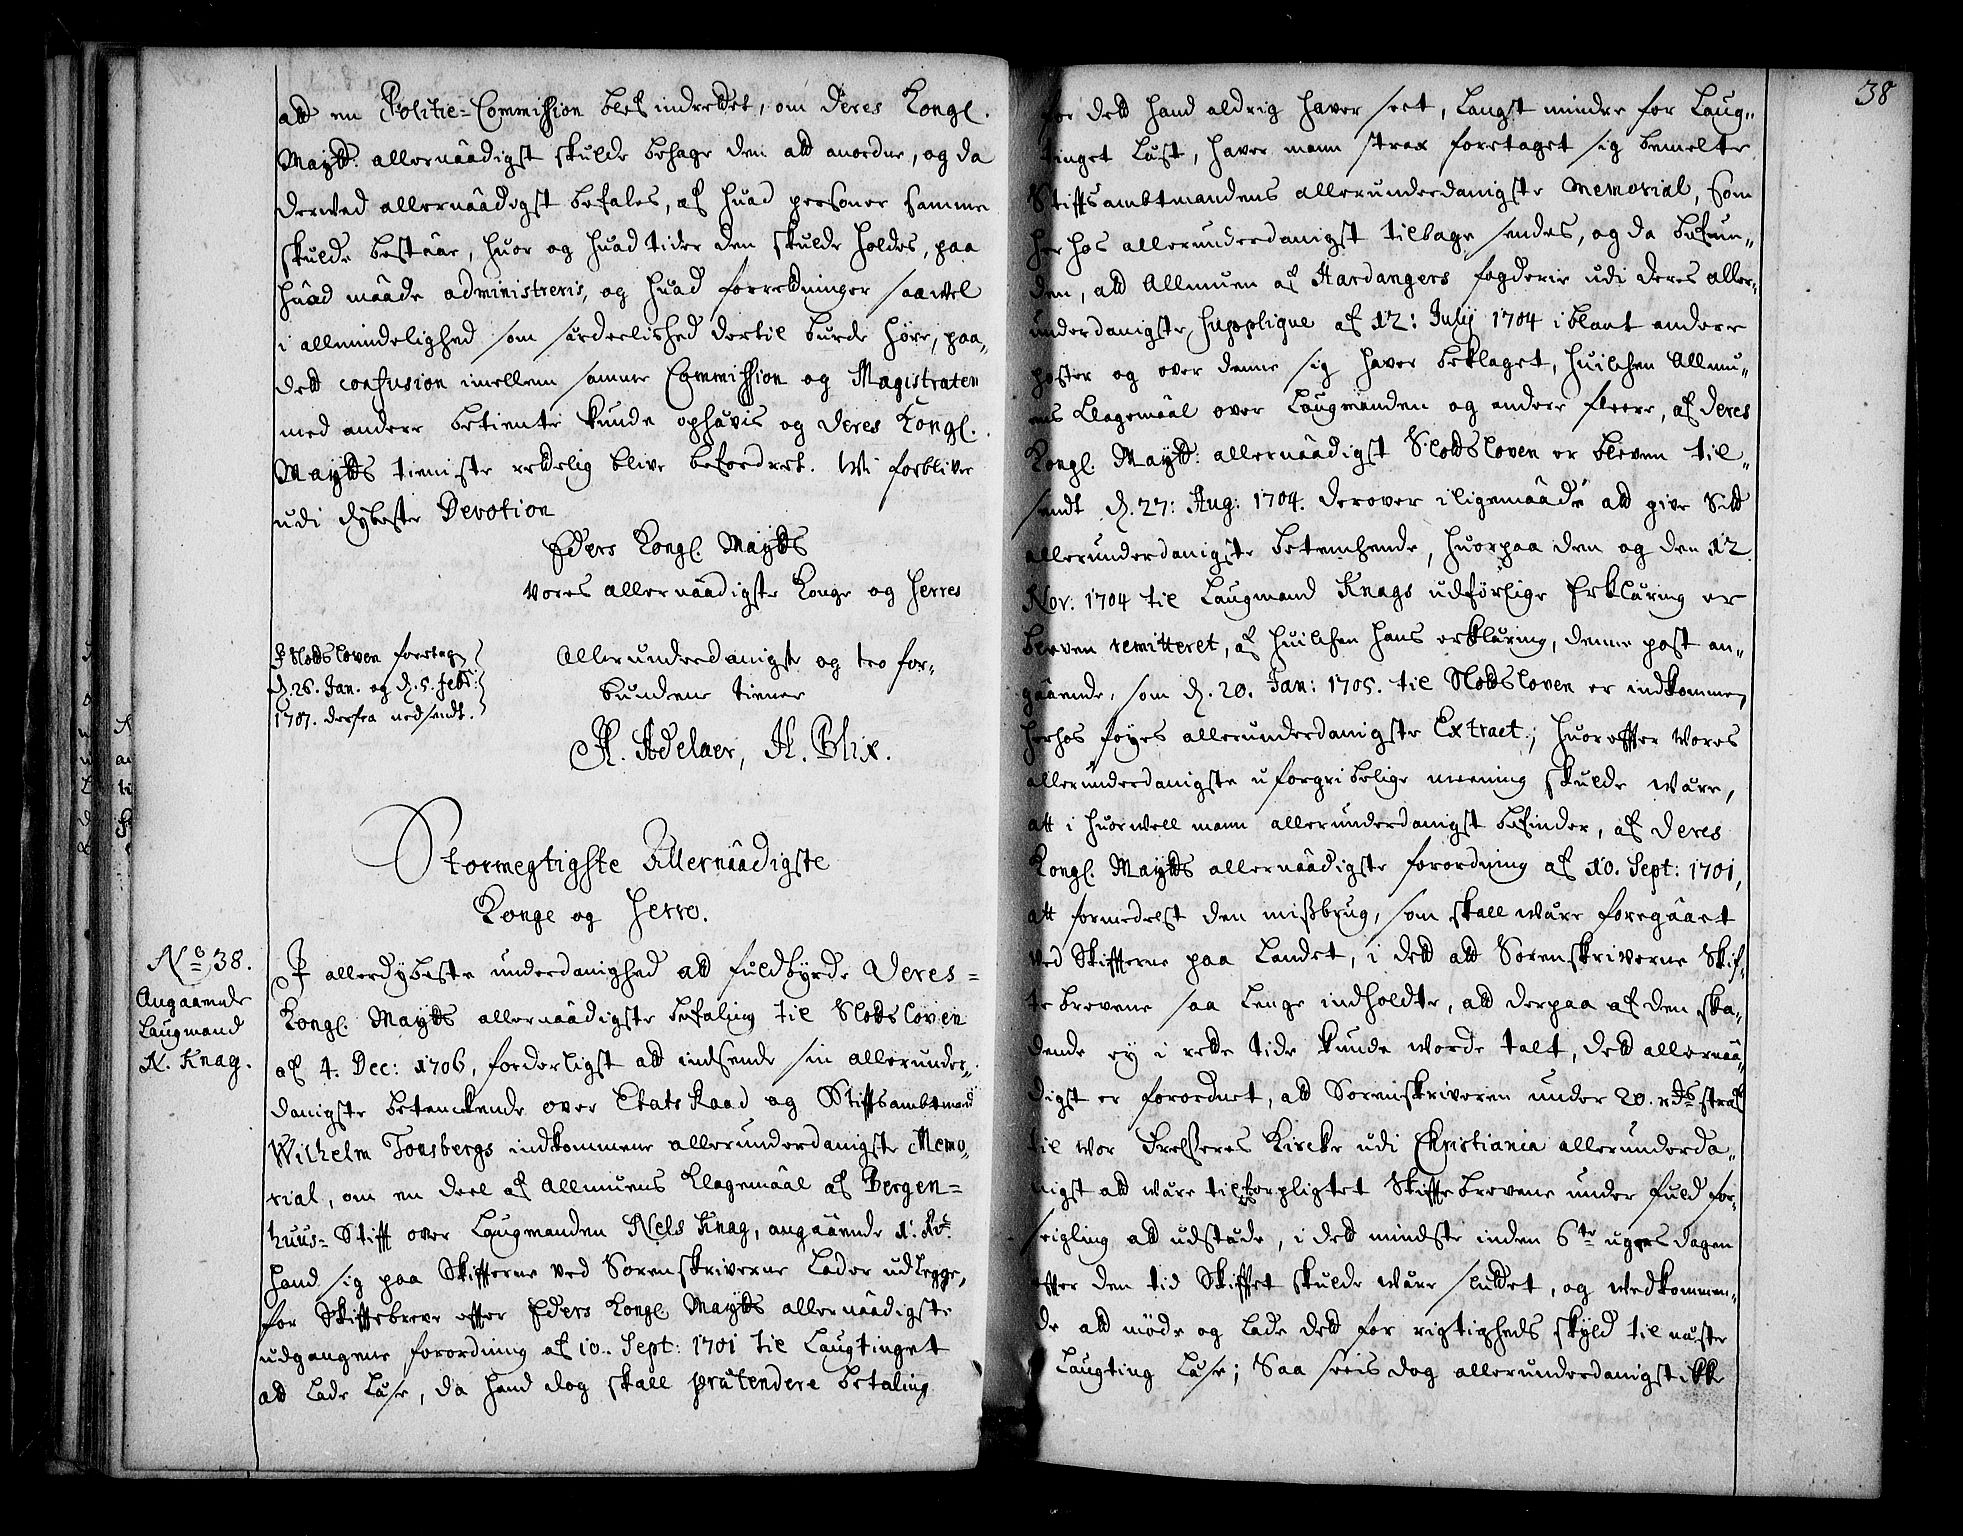 att en Politie-Commission blef indrettet, om Deres Kongl.
Maytt: allernäädigst skulde behage den att anordne, og da
derved allernäädigst befales, af huad personer samme
skulde bestäär, huor og huad tider den skulde holdes, paa
huad määde administreris, og huad forrettninger saawel
i allmindelighed som särdeelished dertil burde höre, paa,,
dett confusion imellem samme Commission og Magistraten
med andere betiente kunde ophävis og Deres Kongl.
Maytts tieniste rettelig blive befordret. Wi forblive
udi dybeste Devotion
Eders Kongl. Maytts
Vores allernäädigste Konge og Herres
Allerunderdanigste og tro for-
bundene tienere
H. Adelaer, H. Blix.
I Slotts Loven foretagen
d. 26. Jan. og d. 5. Feb:
1707. derfra nedsendt.
Stormegtigste Allernäädigste
Konge og Herre.
No 38.
Angaaende
Laugmand
N. Knag.
I allerdybeste underdanighed att fuldbyrde Deres-
Kongl. Maytts allernäädigste befaling til Slotts Loven
af 4. Dec: 1706, forderligst att indsende sin allerunder,,
danigste betenckende over Etats Raad og Stiftsambtmand
Wilhelm Tonsbergs indkommene allerunderdanigste Memo,
rial, om en deel af Allmuens Klagemäal af Bergen-
huus- Stift over Laugmanden Nels Knag, angäaende 1. Rd:
hand sig paa Skiffterne ved Sorenskriverne Lader udlegge,
for Skifftebreve effter Eders Kongl. Maytts allernäädigste
udgangene forordning af 10. Sept: 1701 til Laugtinget
att lade läse, da hand dog skall prätendere betaling
38
for dett hand aldrig haver seet, Langst mindre for Laug,,
tinget läst, haver mann strax foretaget sig bemelte
Stiftsambtmandens allerunderdanigste Memorial, som
herhos allerunderdanigst tilbage sendes, og da befun,,
den, att Allmuen af Hardangers fogderie udi deres aller,,
underdanigste Supplique af 12: July 1704 iblant andere
poster og over denne sig haver beklaget, huilchen Allmu,,
ens Klagemäal over Laugmanden og andere fleere, af Deres
Kongl. Maytt: allernäädigst Slottsloven er bleven til,,
sendt d. 27: Aug: 1704. derover iligemäade att give Sitt
allerunderdanigste betenchende, huorpaa den og den 12
Nov: 1704 til Laugmand Knags udförlige Erkläring er
bleven remitteret, af huilchen hans erkläring, denne post an,,
gäaende, som d. 20. Jan: 1705. til Slottsloven er indkommen,
herhos föyes allerunderdanigste Extract; huoreffter Vores
allerunderdanigste uforgribelige meening skulde wäre,
att i huorwell mann allerunderdanigst befinder, af Deres
Kongl. Maytts allernäädigste forordning af 10. Sept: 1701,
att formedelst den missbrug, som skall wäre foregäaet
ved Skiffterne paa Landet, i dett att Sorenskriverne Skif,
tebrevene saa lenge indholdte, att derpaa af den ska,
dende ey i rette tide kunde worde talt, dett allernää,
digst er forordnet, att Sorenskriveren under 20. rdrs straf
til wor Frelseres Kircke udi Christiania allerunderda,,
nigst att wäre tilforpligtet Skifftebrevene under fuld for,
seigling att udstäde, i dett mindste inden 6te ugers dagen
effter den tid Skifftet skulde wäre sluttet, og wedkommen,,
de att möde og lade dett for rigtigheds skyld til näste
Laugting läse; Saa seeis dog allerunderdanigst ikke